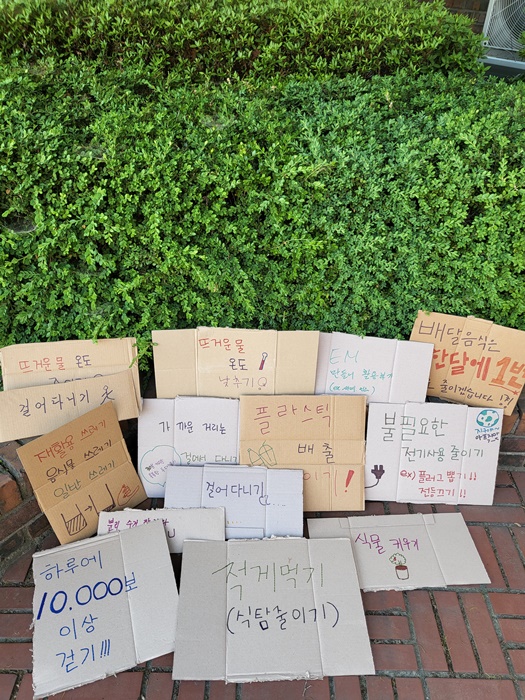 뜨거운 물 온도
걸어다니기
뜨거운 물
온도
낮추기
EM
배달음식은
한달에 1번
줄이겠습니다!
재활용 쓰레기
음식물 쓰레기
일반 쓰레기
가까운 거리는
걸어서 다니
플라스틱
배출
이기!
불필요한
전기사용 줄이기
ex) 플러그 뽑기!!
전등끄기!!
걸어다니기...
하루에
10,000보
이상
걷기!!!
적게먹기
(식탐줄이기)
식물 키우기